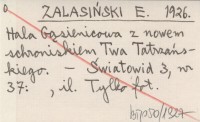 ZALASIŃSKI E. 1926.
Hala Gąsienicowa z nowem
schroniskiem Twa Tatrzań-
skiego. - Światowid 3, nr
37: , il. Tylko fot.
50/1927